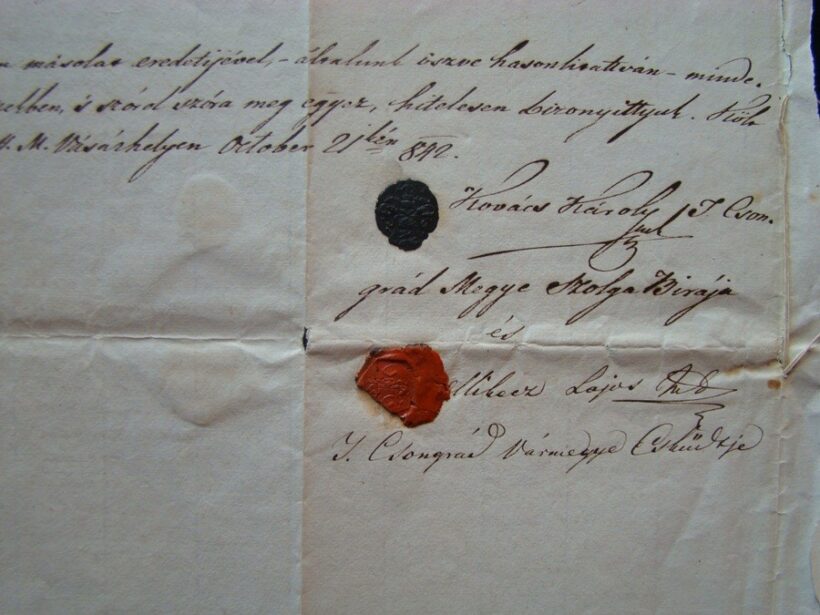 másolat eredetijével, – általunk öszve hasonlítatván – minde.
ekben, is szóról szóra meg egyez, hitelesen bizonyíttyuk. Költ
H. M. Vásárhelyen October 21kén 842.
Kovács Károly T. Cson.
grád Megye Szolga Birája
és
Mihecz Lajos
T. Csongrád Vármegye Esküdtje